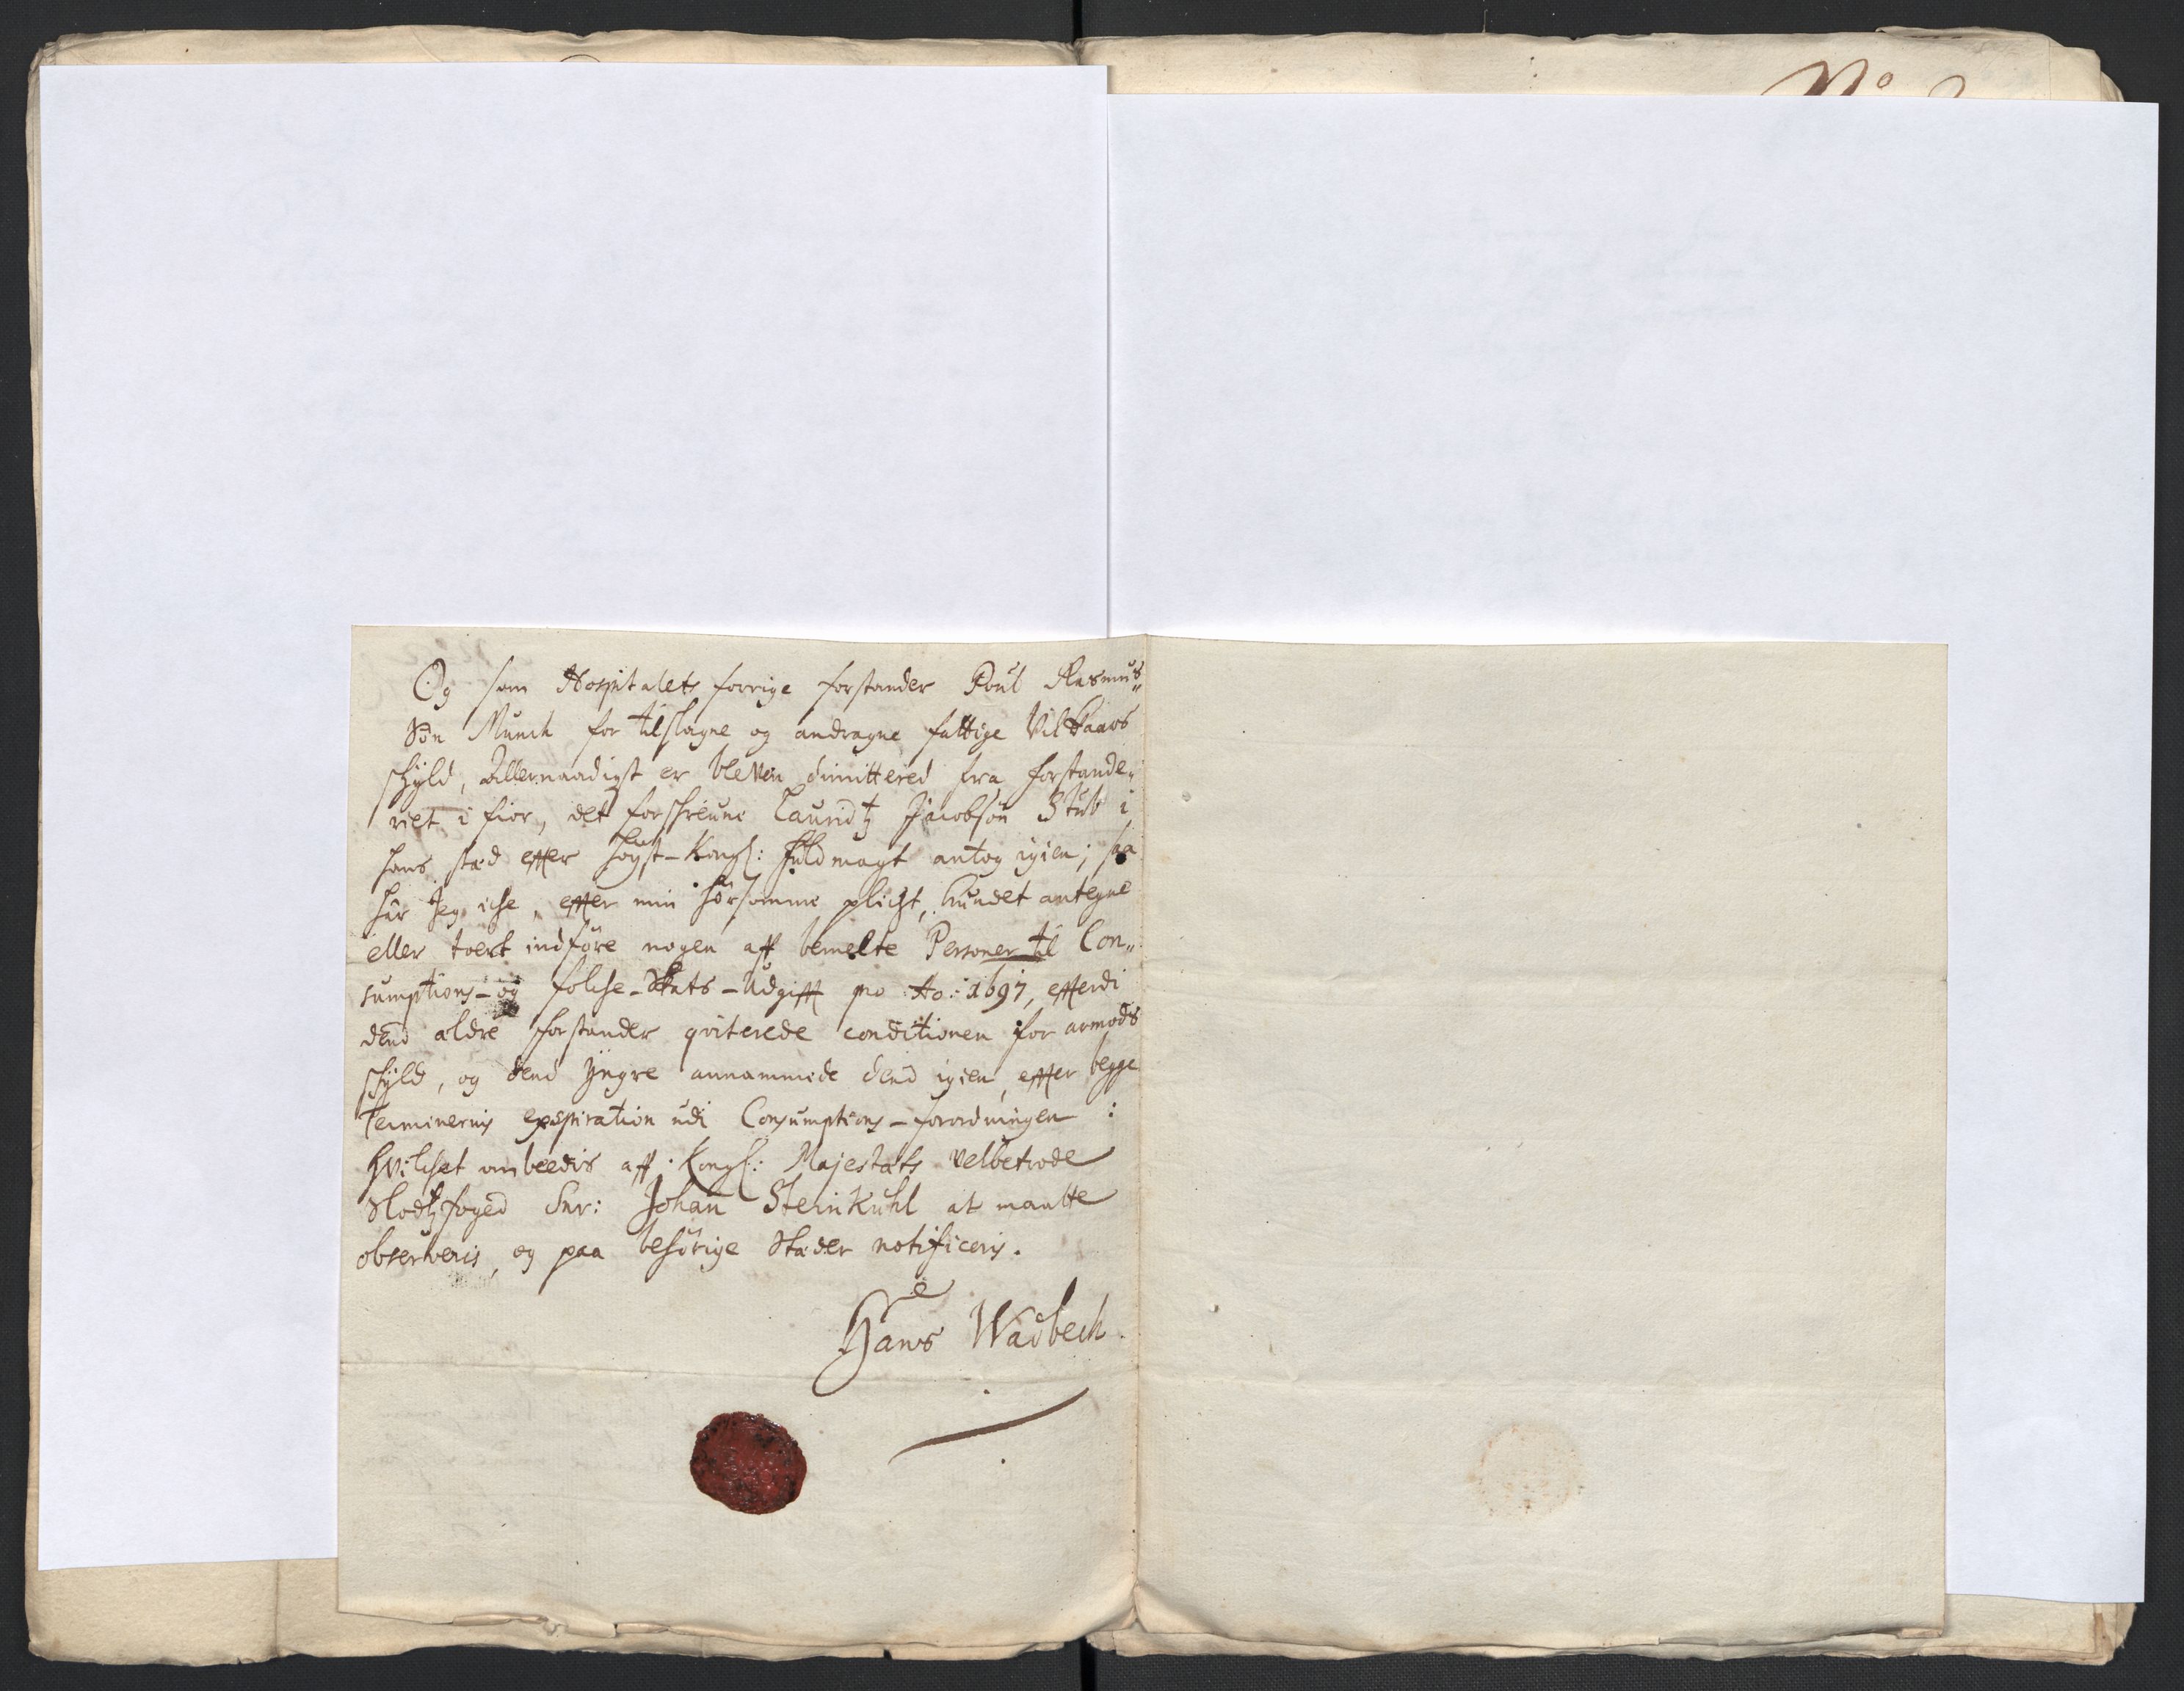 No
Og som Hospitalets forrige forstander Poul Rasmus„
Søn Munch for tilslagne og andragne fattige Vilkaars
schyld, Allernaadigst er bleven dimittered fra forstande„
riet i fior, det forschreune Lauridtz Jacobsøn Stub i
hans stæd efter høyst-Kongl: fuldmagt antog igien; saa
har Jeg iche, efter min hørsomme plicht, kundet antegne
eller indføre nogen aff bemelte Personer til Con„
sumptions- og folche-Skats-Udgifft pro Ao: 1697, efterdi
dend ældre forstander qviterede conditionen for armods
schyld, og dend Yngre annammede dend igien, efter begge
Terminernis exspiration udi Consumptions-forordningen:
hvilchet ombeedis aff Kongl: Majestæts velbetrode
Slodtzfoged Snr: Johan Steinkuhl at maatte
observeris, og paa behørige Stæder notificeris.
Hans Wadbech